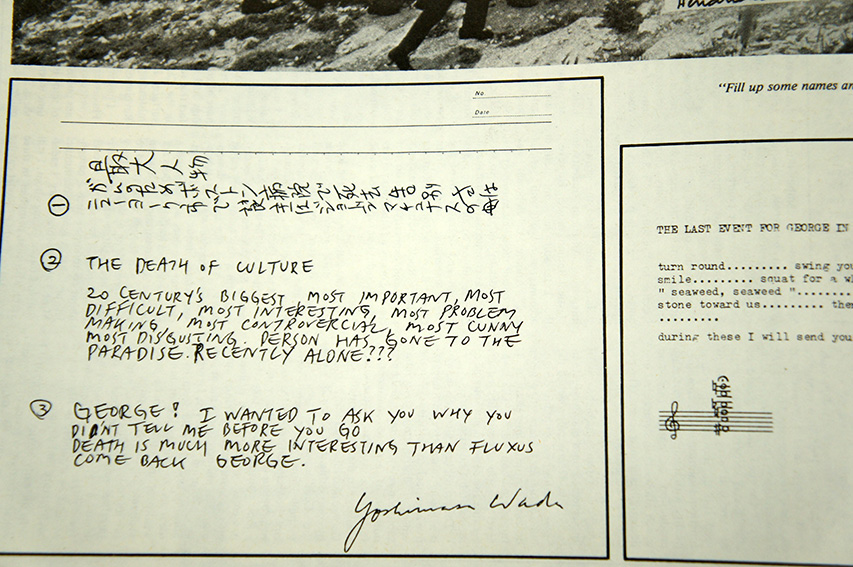 No.
Date
最大人物
①
②
THE DEATH OF CULTURE
20 CENTURY'S BIGGEST, MOST IMPORTANT, MOST
DIFFICULT, MOST INTERESTING, MOST PROBLEM
MAKING, MOST CONTROVERCIAL, MOST CUNNY
MOST DISGUSTING. PERSON HAS GONE TO THE
PARADISE. RECENTLY ALONE???
③
GEORGE! I WANTED TO ASK YOU WHY YOU
DIDNT TELL ME BEFORE YOU GO
DEATH IS MUCH MORE INTERESTING THAN FLUXUS
COME BACK GEORGE.
Yoshimasa Wada
"Fill up some names
THE LAST EVENT FOR GEORGE IN
turn round......... swing you
smile......... squat for a
" seaweed, seaweed ".........
stone toward us.........
.........
during these I will send you